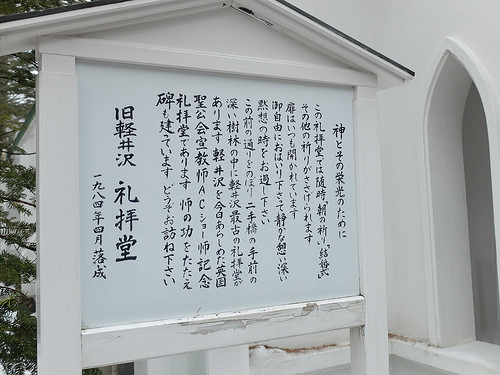 神とその栄光のために
この礼拝堂では随時、朝の祈り、「結婚式」
その他の祈りがささげられます
扉はいつも開かれています
御自由におはいり下さって静かな憩い、深い
黙想の時をお過し下さい
この前の通りをのぼり 二手橋の手前の
深い樹林の中に軽井沢最古の礼拝堂が
あります 軽井沢を今日あらしめた英国
聖公会宣教師ACショー師記念
礼拝堂であります 師の功をたたえ
碑も建っています どうぞお訪ね下さい
旧軽井沢 礼拝堂
一九八四年四月落成